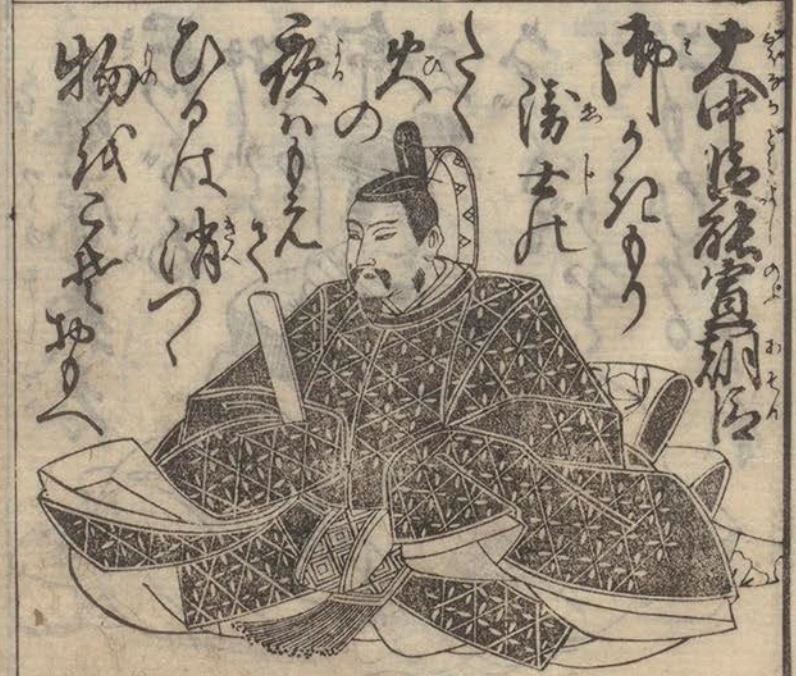 大中臣能宣朝臣
御かきもり
衛士の
たく
火の
夜ハもえ
て
ひるは消つゝ
物をこそおもへ